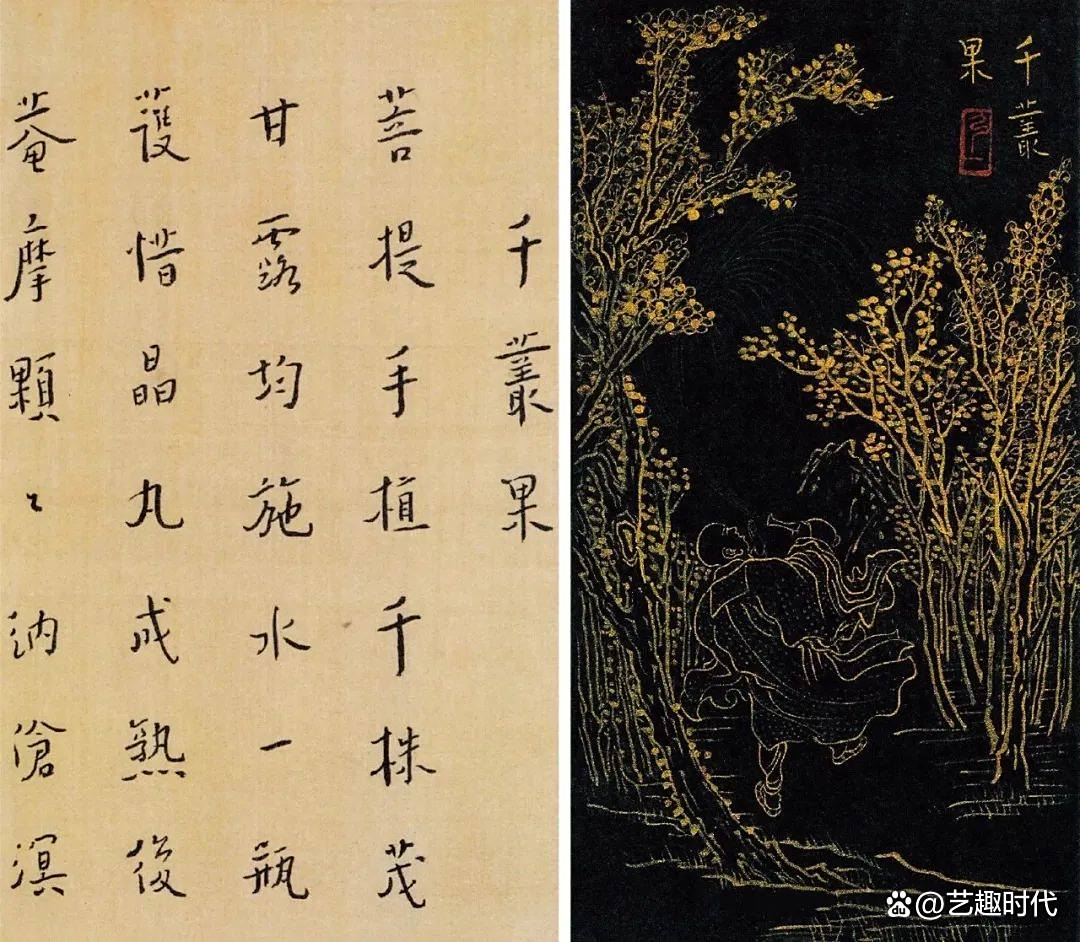 千叢果
菩提手植千株茂
甘露均施水一瓶
護惜晶丸成熟後
菴摩顆〻納滄溟
千叢
果
@艺趣时代